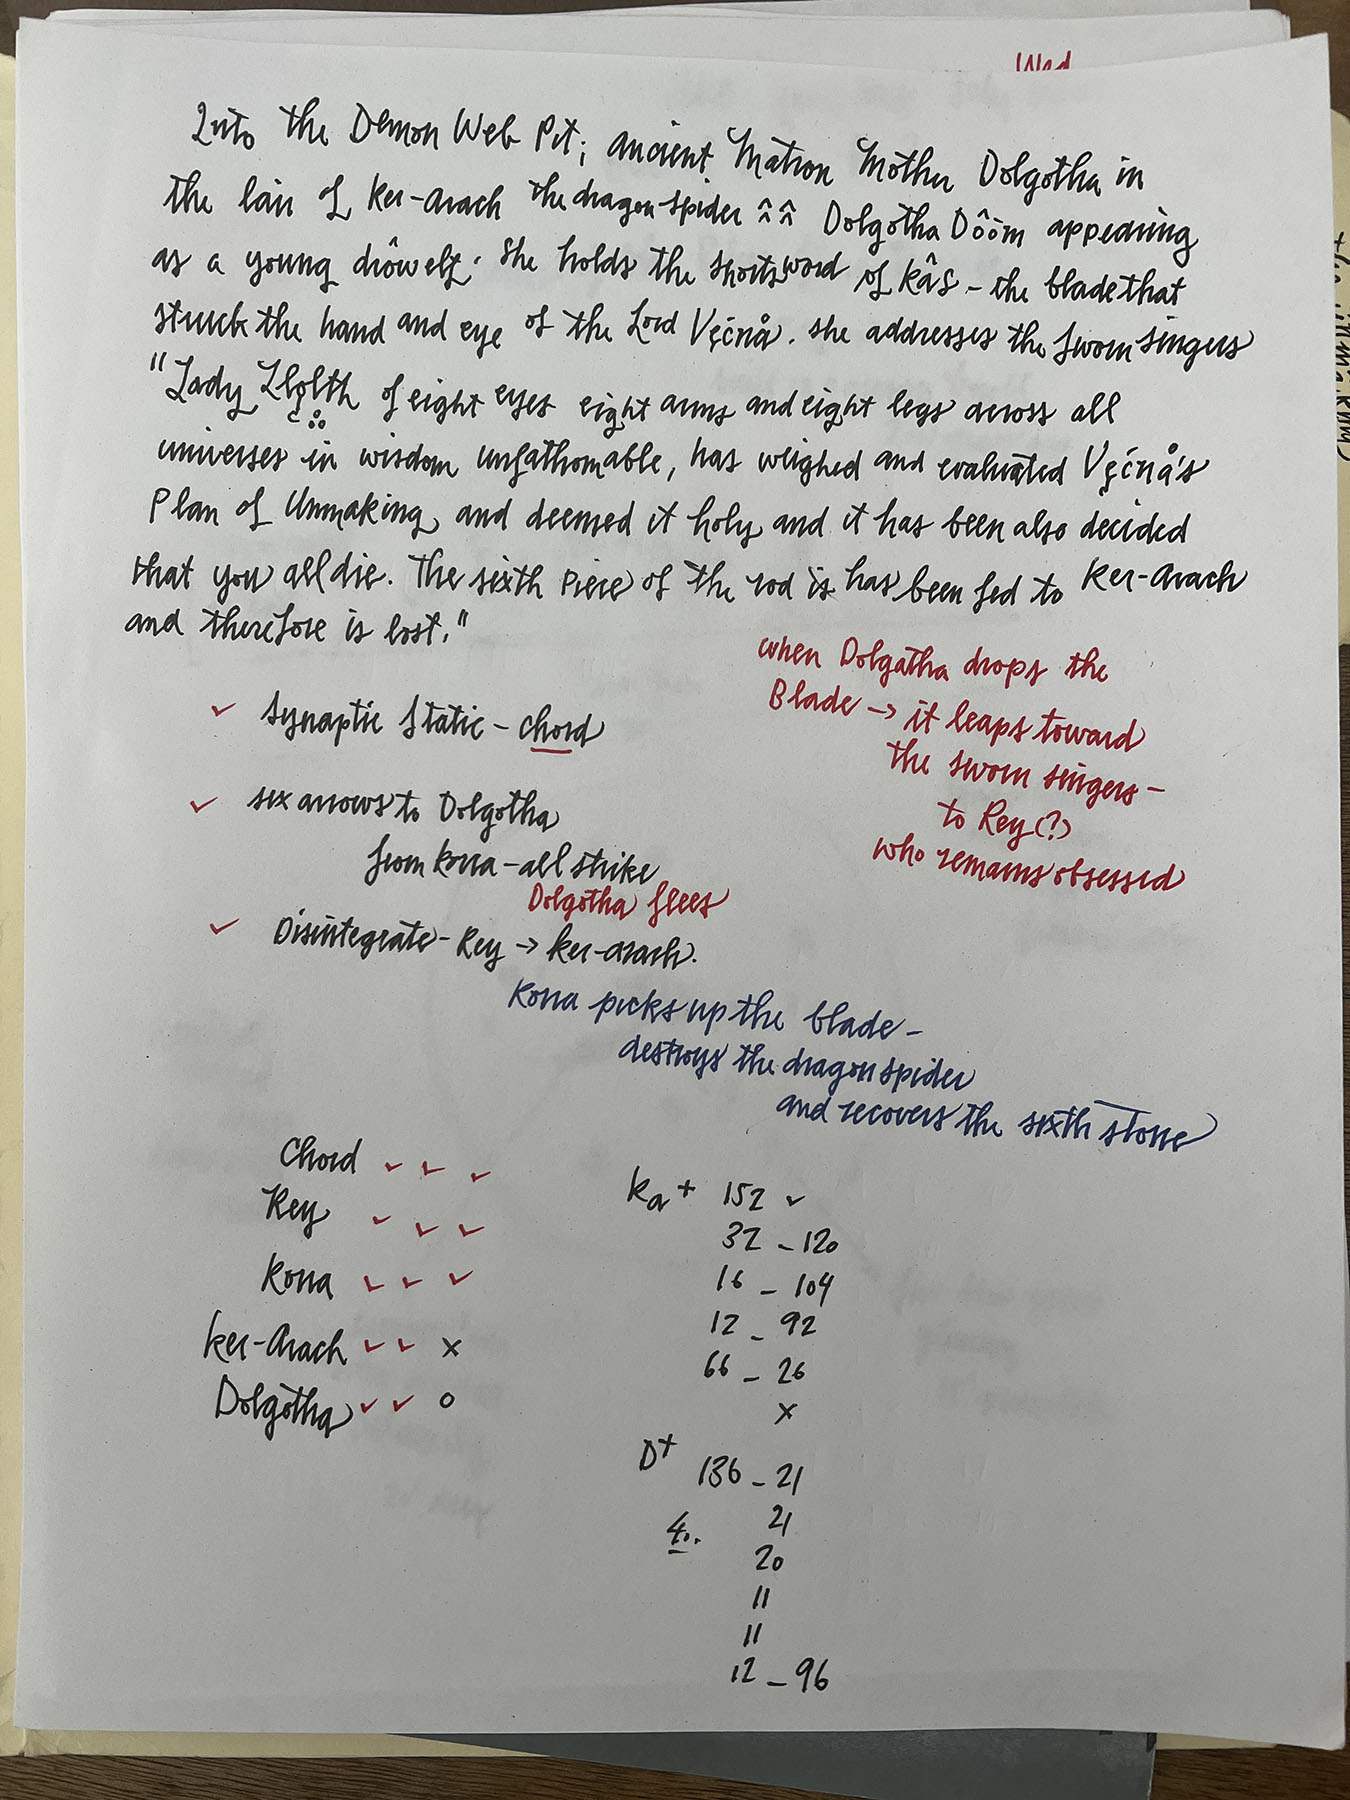 Wed
Into the Demon Web Pit; ancient Matron Mother Dolgotha in
the lair of Ker-Arach the dragon spider ^^ ^^ Dolgotha Dôôm appearing
as a young drôwelf. She holds the shortsword of Kâs – the blade that
struck the hand and eye of the Lord Vęćnå. She addresses the sworn singers
"Lady Llolth of eight eyes eight arms and eight legs across all
universes in wisdom unfathomable, has weighed and evaluated Vęćnå's
Plan of Unmaking and deemed it holy and it has been also decided
that you all die. The sixth piece of the rod is has been fed to Ker-Arach
and therefore is lost."
when Dolgatha drops the
Blade → it leaps toward
the sworn singers –
to Rey (?)
who remains obsessed
✓ Synaptic Static – Chord
✓ six arrows to Dolgotha
from Kona – all strike
Dolgotha flees
✓ Disintegrate – Rey → Ker-Arach.
Kona picks up the blade –
destroys the dragon spider
and recovers the sixth stone
Chord ✓ ✓ ✓
Rey ✓ ✓ ✓
Kona ✓ ✓ ✓
Ker-Arach ✓ ✓ x
Dolgotha ✓ ✓ o
Ka + 152 ✓
32 – 120
16 – 104
12 – 92
66 – 26
x
D+ 136 – 21
4. 21
20
11
11
12 – 96